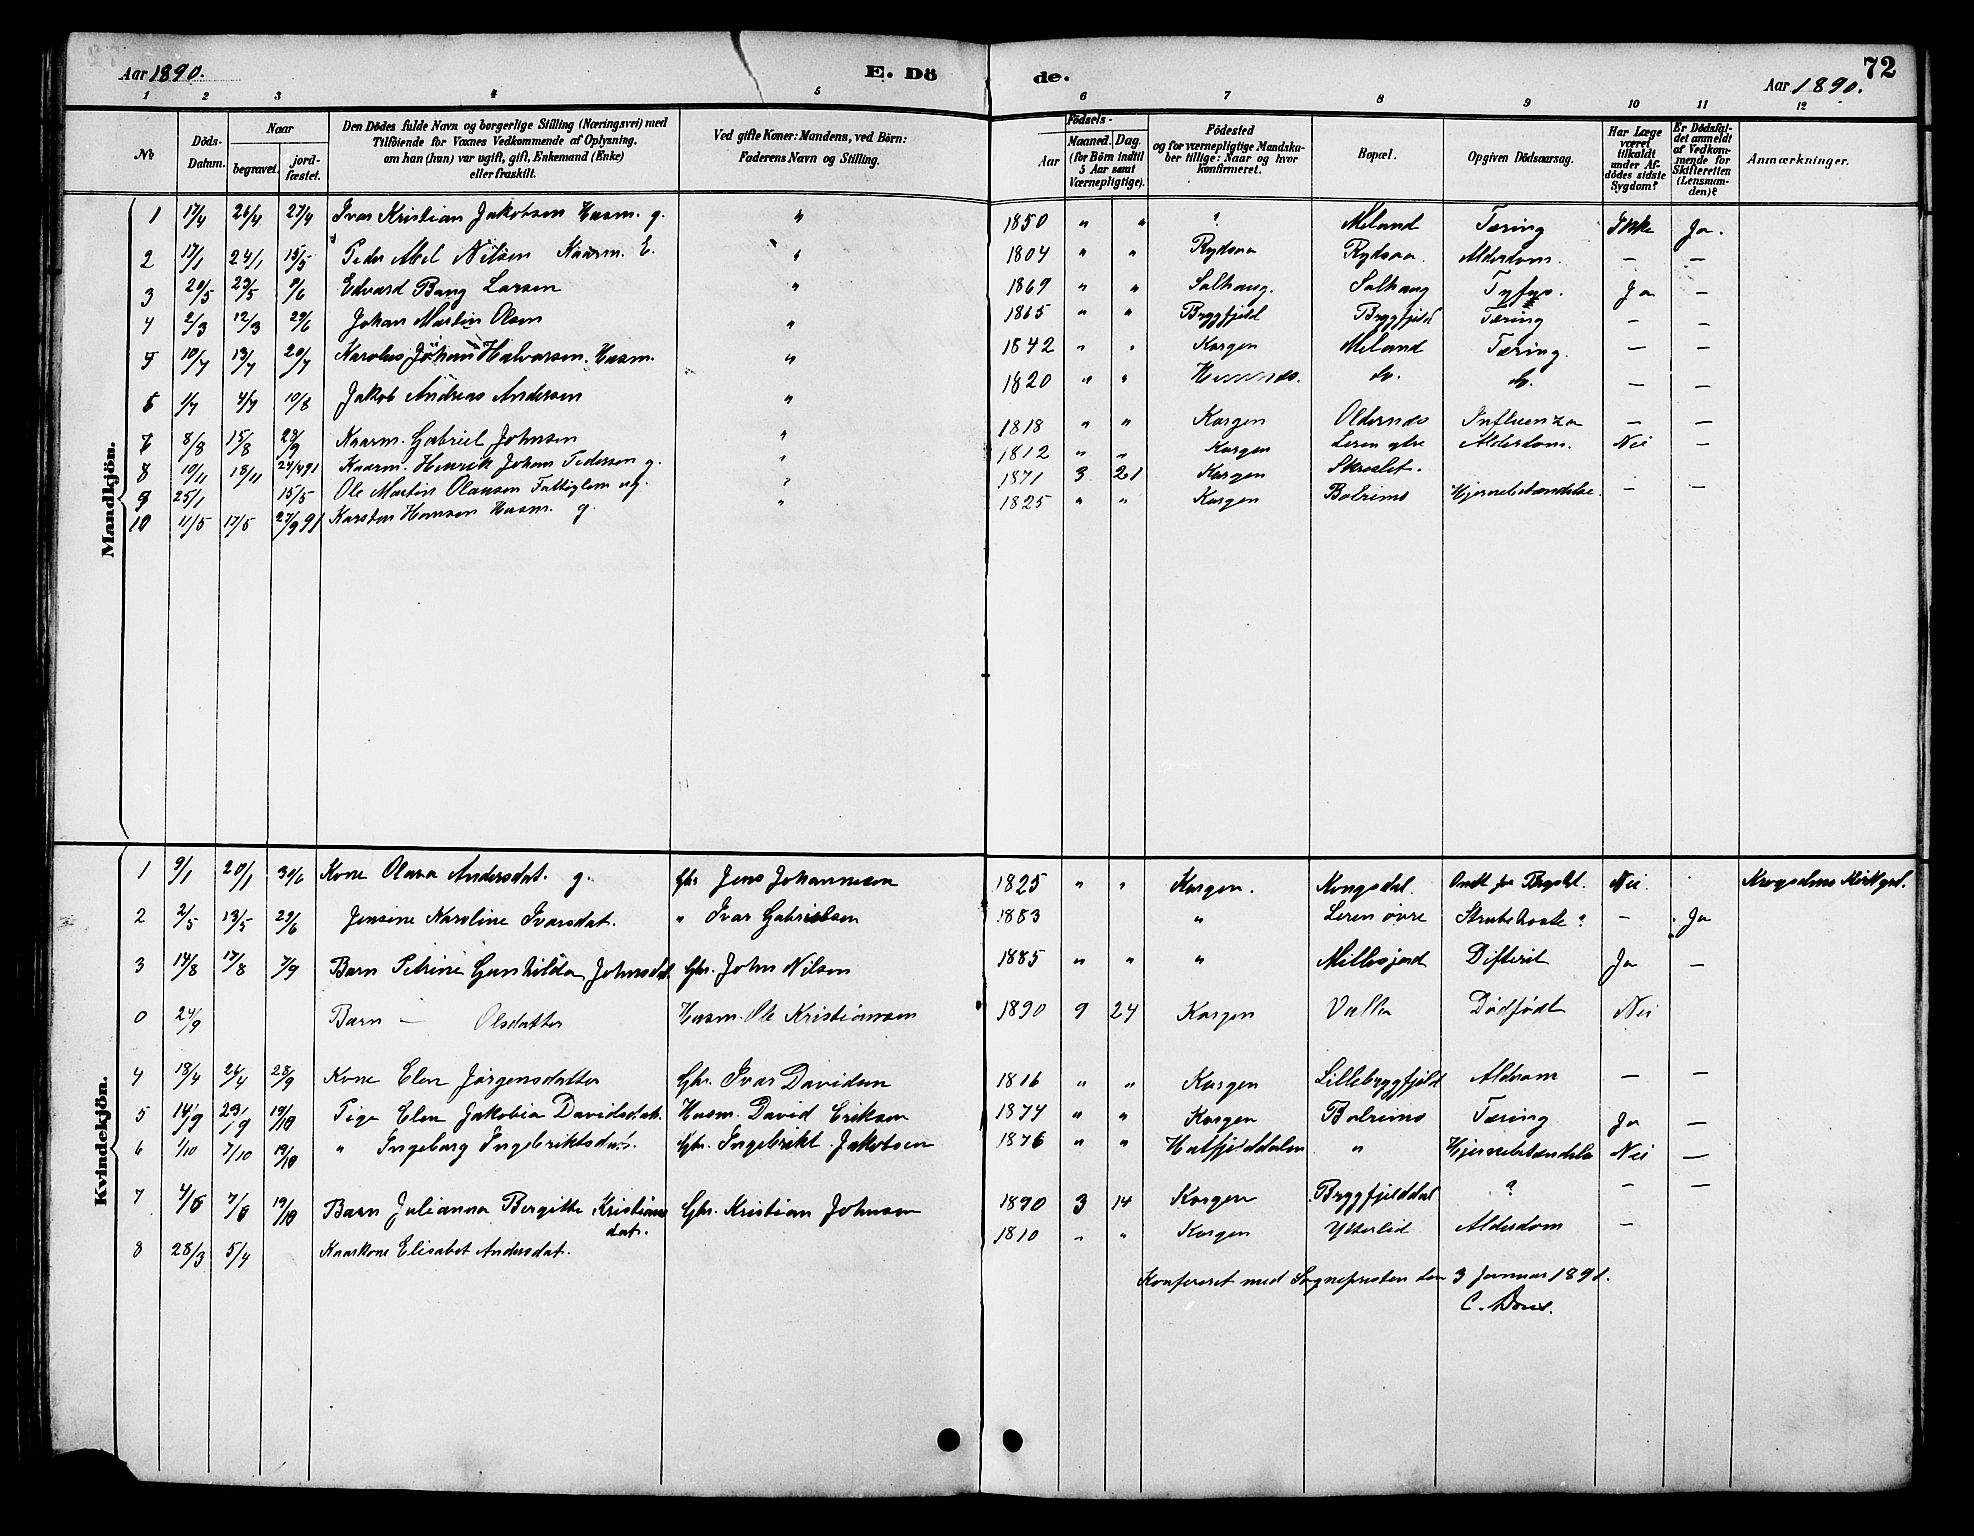 Aar 1890. E. Dö de. Aar 1890. 72
1 2 3 4 5 6 7 8 9 10 11 12
No
Döds-Datum.
Naar
begravet.
jordfæstet.
Den Dödes fulde Navn og borgerlige Stilling (Næringsvei) med
Tilföiende for Voxnes Vedkommende af Oplysning,
om han (hun) var ugift, gift, Enkemand (Enke)
eller fraskilt.
Ved gifte Koner: Mandens, ved Börn:
Faderens Navn og Stilling.
Födsels-
Aar
Maaned. Dag.
(for Börn indtil
5 Aar samt
Værnepligtige).
Födested
og for værnepligtige Mandska-
ber tillige: Naar og hvor
konfirmeret.
Bopæl.
Opgiven Dödsaarsag.
Har Læge
været
tilkaldt
under Af-
dödes sidste
Sygdom?
Er Dödsfal-
det anmeldt
af Vedkom-
mende for
Skifteretten
(Lensman-
den)?
Anmærkninger.
Mandkjön.
1 17/4 26/4 27/4 Ivar Kristian Jakobsen Husm. g. " 1850 " " ? Meland Tæring Ikke Ja.
2 17/1 24/1 15/5 Peder Abel Nilsen Kaarm. E. " 1804 " " Rydsaa Rydsaa. Alderdom. — —
3 20/5 23/5 9/6 Edvard Bang Larsen " 1869 " " Solhaug. Solhaug Tyfus. Ja —
4 2/3 12/3 29/6 Johan Martin Olsen " 1865 " " Bryggfjeld Bryggfjeld Tæring — —
5 10/7 13/7 20/7 Karolus Johan Halvorsen. Husm. " 1842 " " Korgen Meland Tæring. — —
6 1/7 4/7 10/8 Jakob Andreas Andersen " 1820 " " do. do. — —
7 8/8 15/8 28/9 Kaarm. Gabriel Johnsen " 1818 " " Korgen Oldernæs Influenza — —
8 10/11 18/11 24/4 91 Kaarm. Henrik Johan Pedersen g. " 1812 " " Korgen Leren ytre Alderdom. Nei —
9 25/1 15/5 Ole Martin Olausen Fattiglem ug. ? 1871 3 21 Korgen
10 11/5 17/5 27/9 91 Karsten Hansen Husm. g. " 1825 " " Korgen Bolrimo Hjernebetændelse. — —
Kvindekjön.
1 9/1 20/1 30/6 Kone Olava Andersdat. g. Gbr Jens Johannesen 1825 " " Korgen. Kongsdal. Ondt for Brystet. Nei.
2 2/5 13/5 29/6 Jensine Karoline Ivarsdat. " Ivar Gabrielsen 1883 " Leren övre Strubehoste? — Ja
3 14/8 17/8 7/9 Barn Petrine Gunhilda Johnsdat Gbr. John Nilsen 1885 " " " Difterit Ja —
0 24/9 Barn — Olsdatter Husm. Ole Kristiansen 1890 9 24 Korgen Valla Dödfödt Nei
4 18/4 24/4 28/9 Kone Elen Jörgensdatter Gbr. Ivar Davidsen 1816 " " Korgen Lillebryggfjeld Alderdom — —
5 14/9 23/9 19/10 Pige Elen Jakobia Davidsdat. Husm. David Eriksen 1874 " " Korgen Bolrimo Tæring Ja —
6 1/10 7/10 19/10 " Ingeborg Ingebriktsdat. Gbr. Ingebrikt Jakobsen 1876 " " Hatfjelddalen " Hjernebetændelse Nei —
7 4/6 7/6 19/10 Barn Julianna Bergitte Kristiansdat. Gbr. Kristian Johnsen 1890 3 14 Korgen Bryggfjelddal ? — —
8 28/3 5/4 Kaarkone Elisabet Andersdat. 1810 " " Korgen Ytterlid Alderdom —
Konfereret med Sognepresten den 3 Januar 1891.